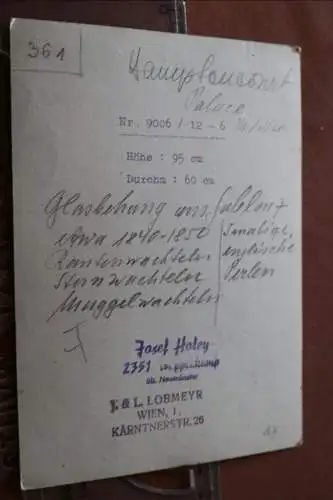 361
Hamptoncourt
Palace
Nr. 9006 / 12 - 6
Höhe : 95 cm
Durchm : 60 cm
Glasbehang aus Gablonz
etwa 1840-1850
Kantenwachteln
Sternwachteln
Muggelwachteln
sonstige
englische
Perlen
Josef Holey
2351
üb. Neumünster
J. & L. LOBMEYR
WIEN, I.,
KÄRNTNERSTR. 26